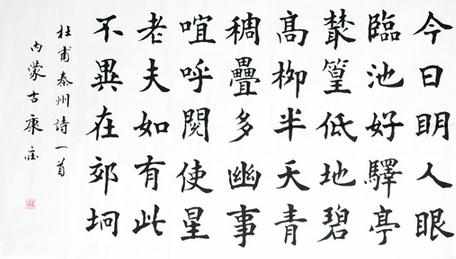 今日明人眼
臨池好驛亭
叢篁低地碧
高柳半天青
稠疊多幽事
喧呼閱使星
老夫如有此
不異在郊坰
杜甫秦州詩一首
内蒙古康